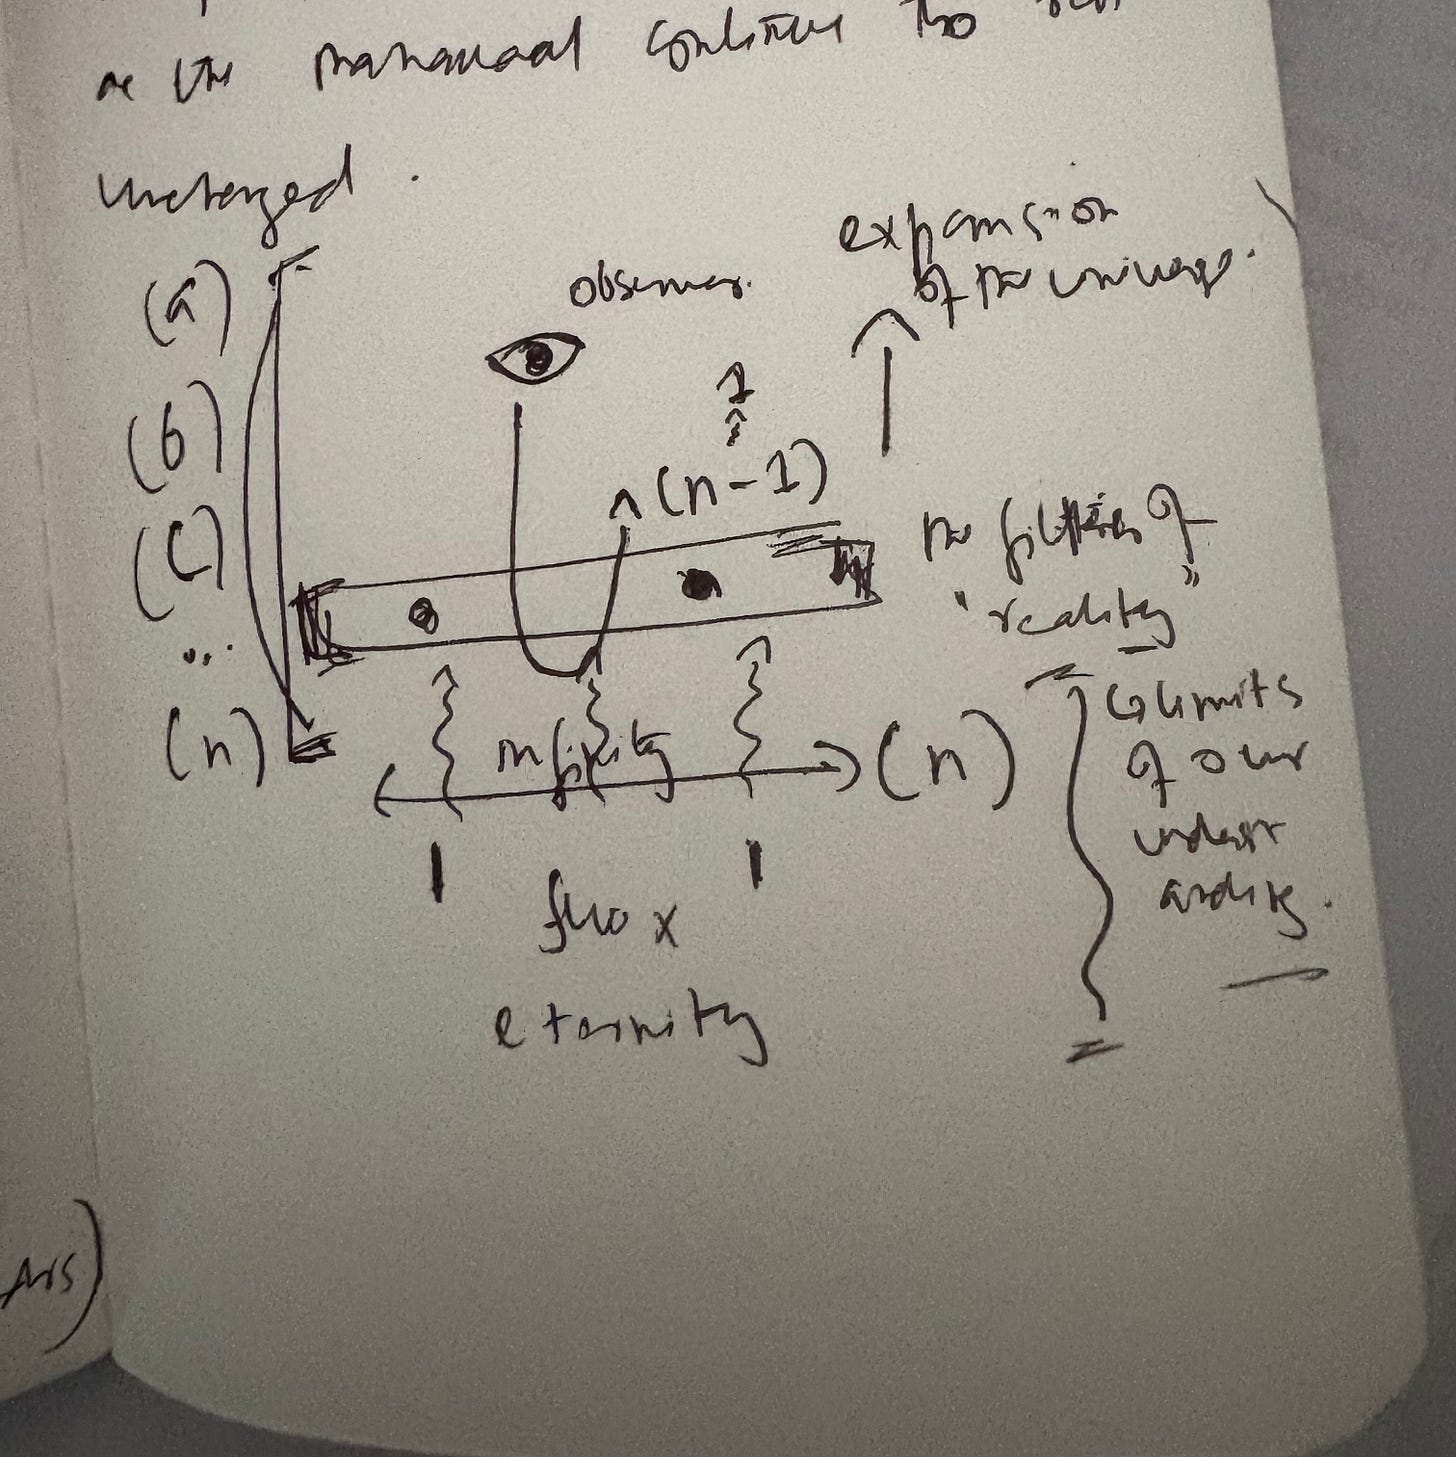 as the continues to
unchanged.
(a)
observer.
expansion
of the universe.
(b)
1
(n-1)
(c)
the filters of
"reality"
...
(n)
infinity
(n)
limits
of our
underst
anding.
flux
eternity